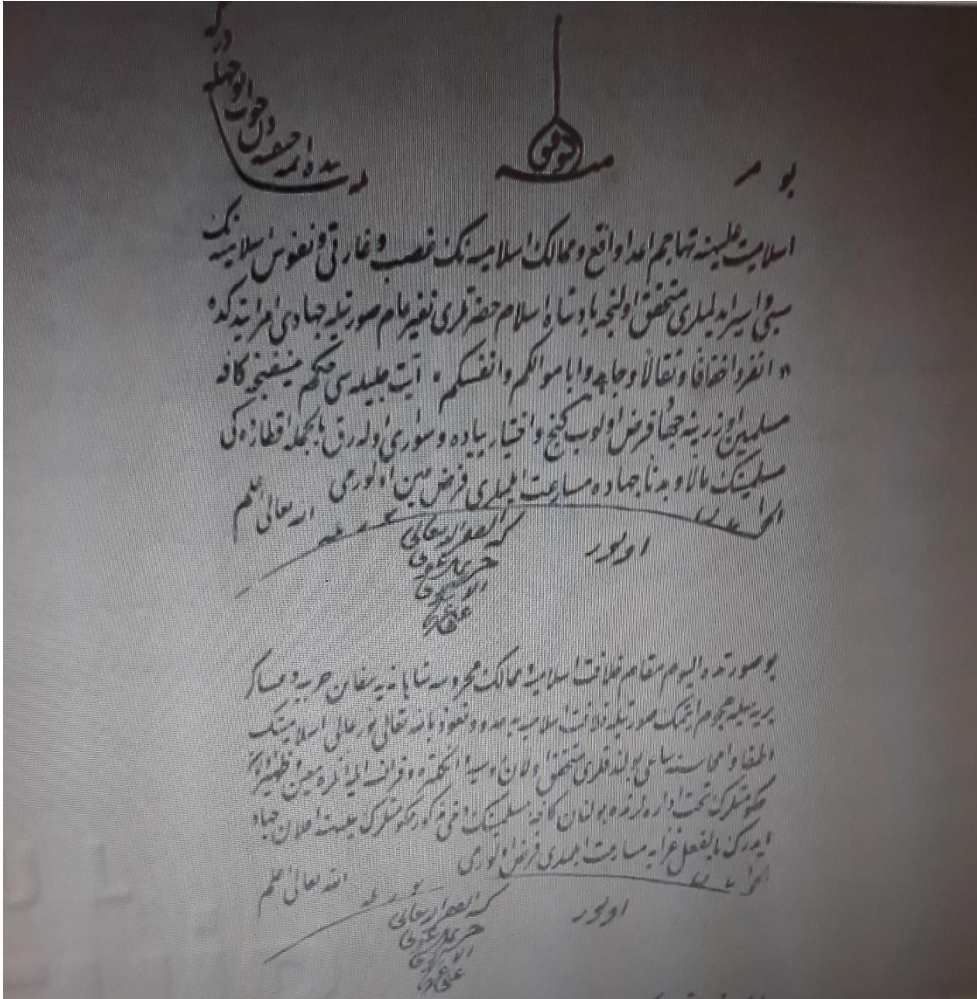 بو مسئله ده ائمه حنفيه دن جواب نه وجهله در كه
اسلاميت عليهنه تهاجم اعدا واقع و ممالك اسلاميه نك غصب و غارتى و نفوس اسلاميه نك
سبى و اسير ايدلملرى متحقق اولنجه پادشاه اسلام حضرتلرى نفير عام صورتيله جهادى امر ايتدكده
« انفروا خفافًا و ثقالًا و جاهدوا باموالكم و انفسكم » آيت جليله سى حكم منيفنجه كافۀ
مسلمين اوزرينه جهاد فرض اولوب كنج و اختيار پياده و سوارى اوله رق بالجمله اقطارده كى
مسلمينك مالًا و بدنًا جهاده مسارعت ايلملرى فرض عين اولورمى
الجواب الله تعالى اعلم
اولور
بو صورتده اليوم مقام خلافت اسلاميه و ممالك محروسۀ شاهانه يه سفائن حربيه و عساكر
بريه سيله هجوم ايتمك صورتيله خلافت اسلاميه يه عدو و نعوذ بالله تعالى نور عالى اسلاميتك
اطفا و امحاسنه ساعى بولندقلرى متحقق اولان روسيه و انكلتره و فرانسه ايله انلره معين و ظهير اولان
حكومتلرك تحت اداره لرنده بولنان كافۀ مسلمينك دخى مذكور حكومتلرك عليهنه اعلان جهاد
ايدرك بالفعل غزايه مسارعت ايلملرى فرض اولورمى
الجواب الله تعالى اعلم
اولور